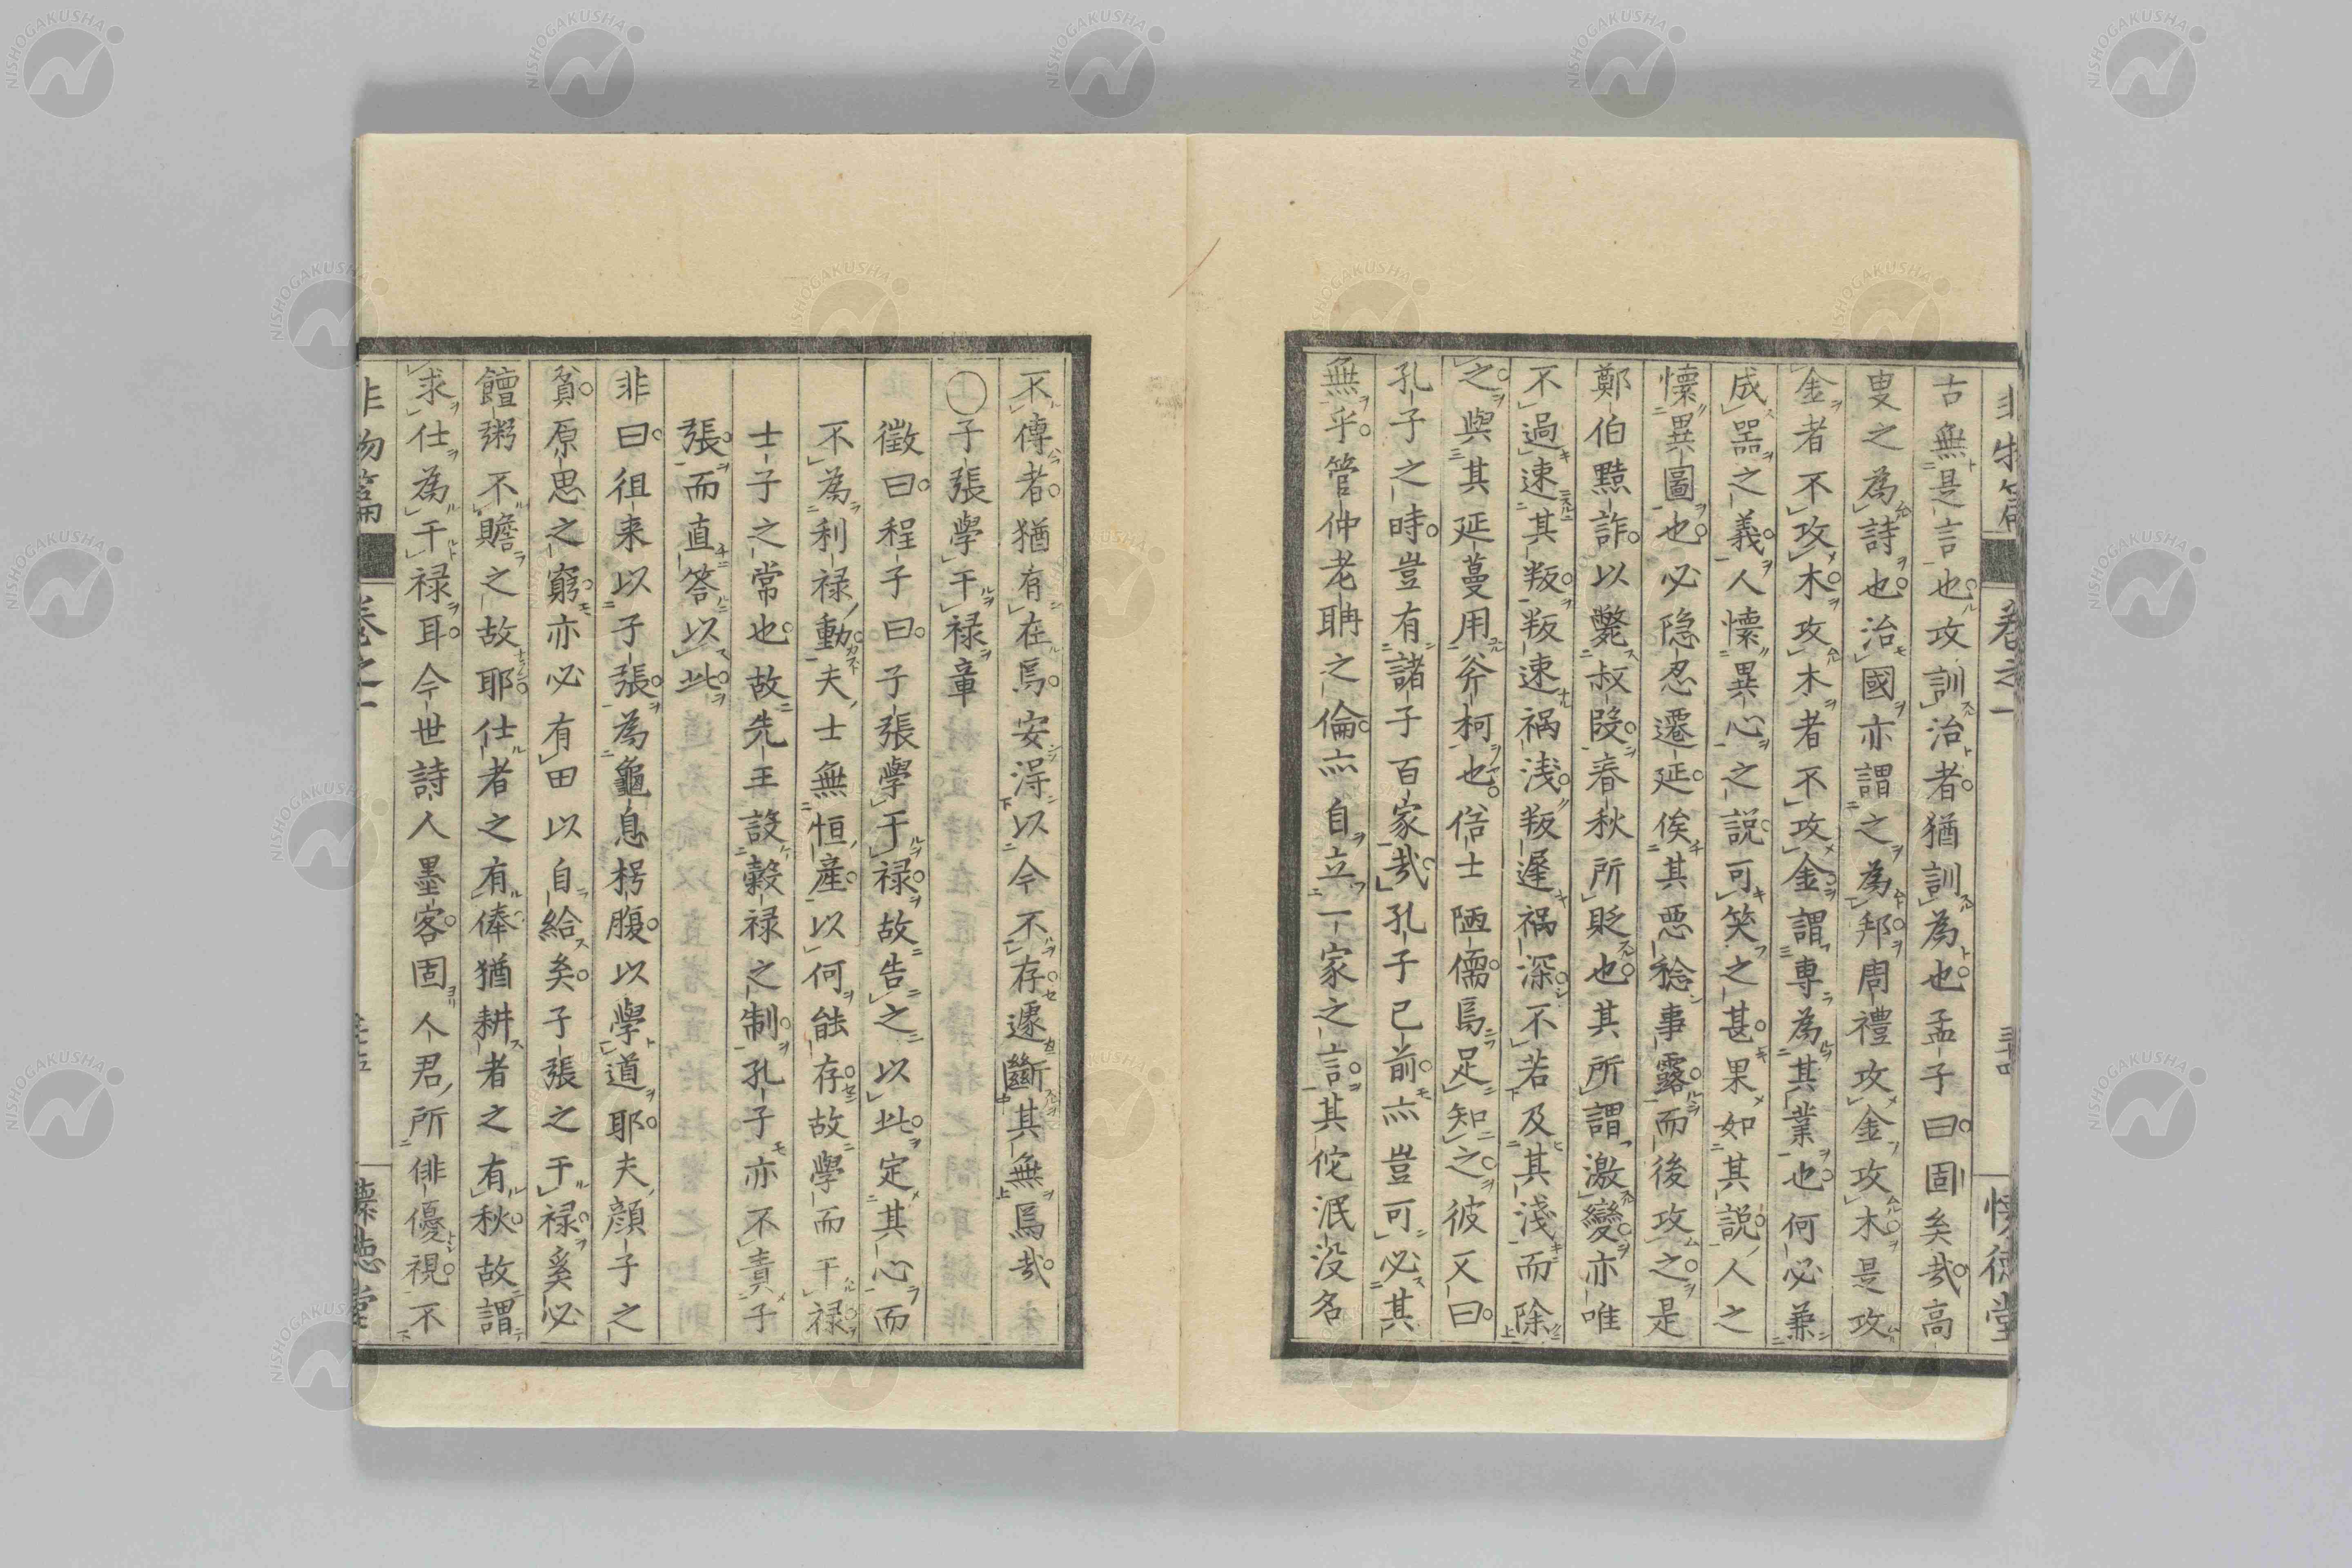 古無是言也攻訓治者猶訓為也孟子曰固矣哉高
叟之為詩也治國亦謂之為邦周禮攻金攻木是攻
金者不攻木攻木者不攻金謂專為其業也何必兼
成器之義人懷異心之説可笑之甚果如其説人之
懷異圖也必隐忍遷延俟其惡稔事露而後攻之是
鄭伯黠詐以斃叔段春秋所貶也其所謂激變亦唯
不過速其叛叛速禍浅叛遲禍深不若及其淺而除
之與其延蔓用斧柯也俗士陋儒焉足知之彼又曰
孔子之時豈有諸子百家哉孔子已前亦豈可必其
無乎管仲老聃之倫亦自立一家之言其佗泯没名
不傳者猶有在焉安淂以今不存遽斷其無焉哉
○子張學干禄章
徵曰程子曰子張學干禄故告之以此定其心而
不為利禄動夫士無恒産以何能存故學而干禄
士子之常也故先王設穀禄之制孔子亦不責子
張而直答以此
非曰徂来以子張為龜息枵腹以學道耶夫顔子之
貧原思之窮亦必有田以自給矣子張之干禄奚必
饘粥不贍之故耶仕者之有俸猶耕者之有秋故謂
求仕為干禄耳今世詩人墨客固人君所俳優視不
非物篇 卷之一 懐徳堂